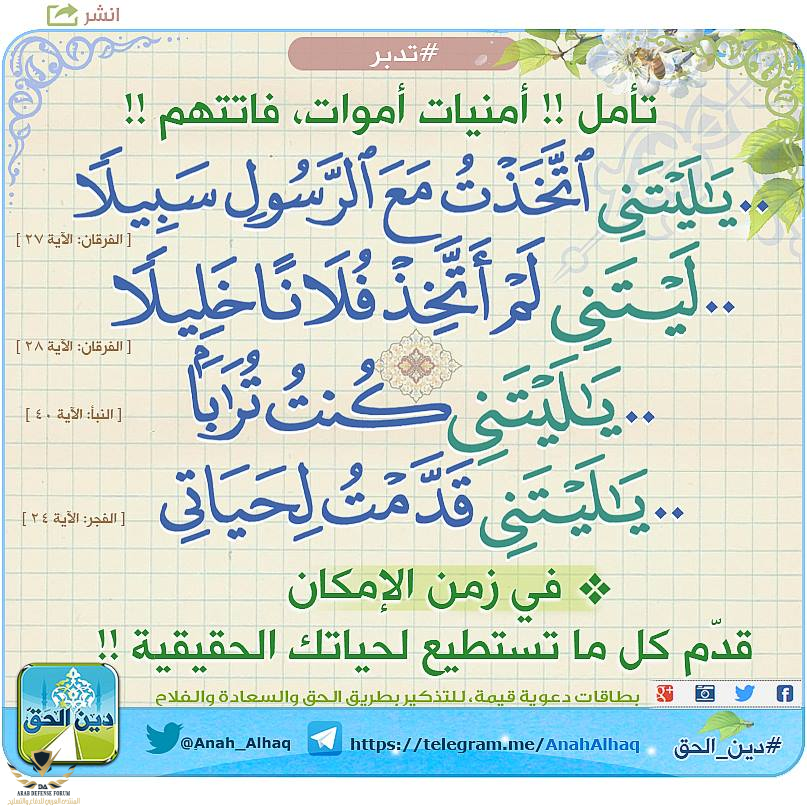 انشر
#تدبر
تأمل !! أمنيات أموات، فاتتهم !!
..يَـٰلَيْتَنِى ٱتَّخَذْتُ مَعَ ٱلرَّسُولِ سَبِيلًا
[ الفرقان: الآية ٢٧ ]
..لَيْتَنِى لَمْ أَتَّخِذْ فُلَانًا خَلِيلًا
[ الفرقان: الآية ٢٨ ]
..يَـٰلَيْتَنِى كُنتُ تُرَٰبَۢا
[ النبأ: الآية ٤٠ ]
..يَـٰلَيْتَنِى قَدَّمْتُ لِحَيَاتِى
[ الفجر: الآية ٢٤ ]
❖ في زمن الإمكان
قدّم كل ما تستطيع لحياتك الحقيقية !!
بطاقات دعوية قيمة، للتذكير بطريق الحق والسعادة والفلاح
#دين_الحق
https://telegram.me/AnahAlhaq
@Anah_Alhaq
دين الحق
ARAB DEFENSE FORUM
المنتدى العربي للدفاع والتسليح